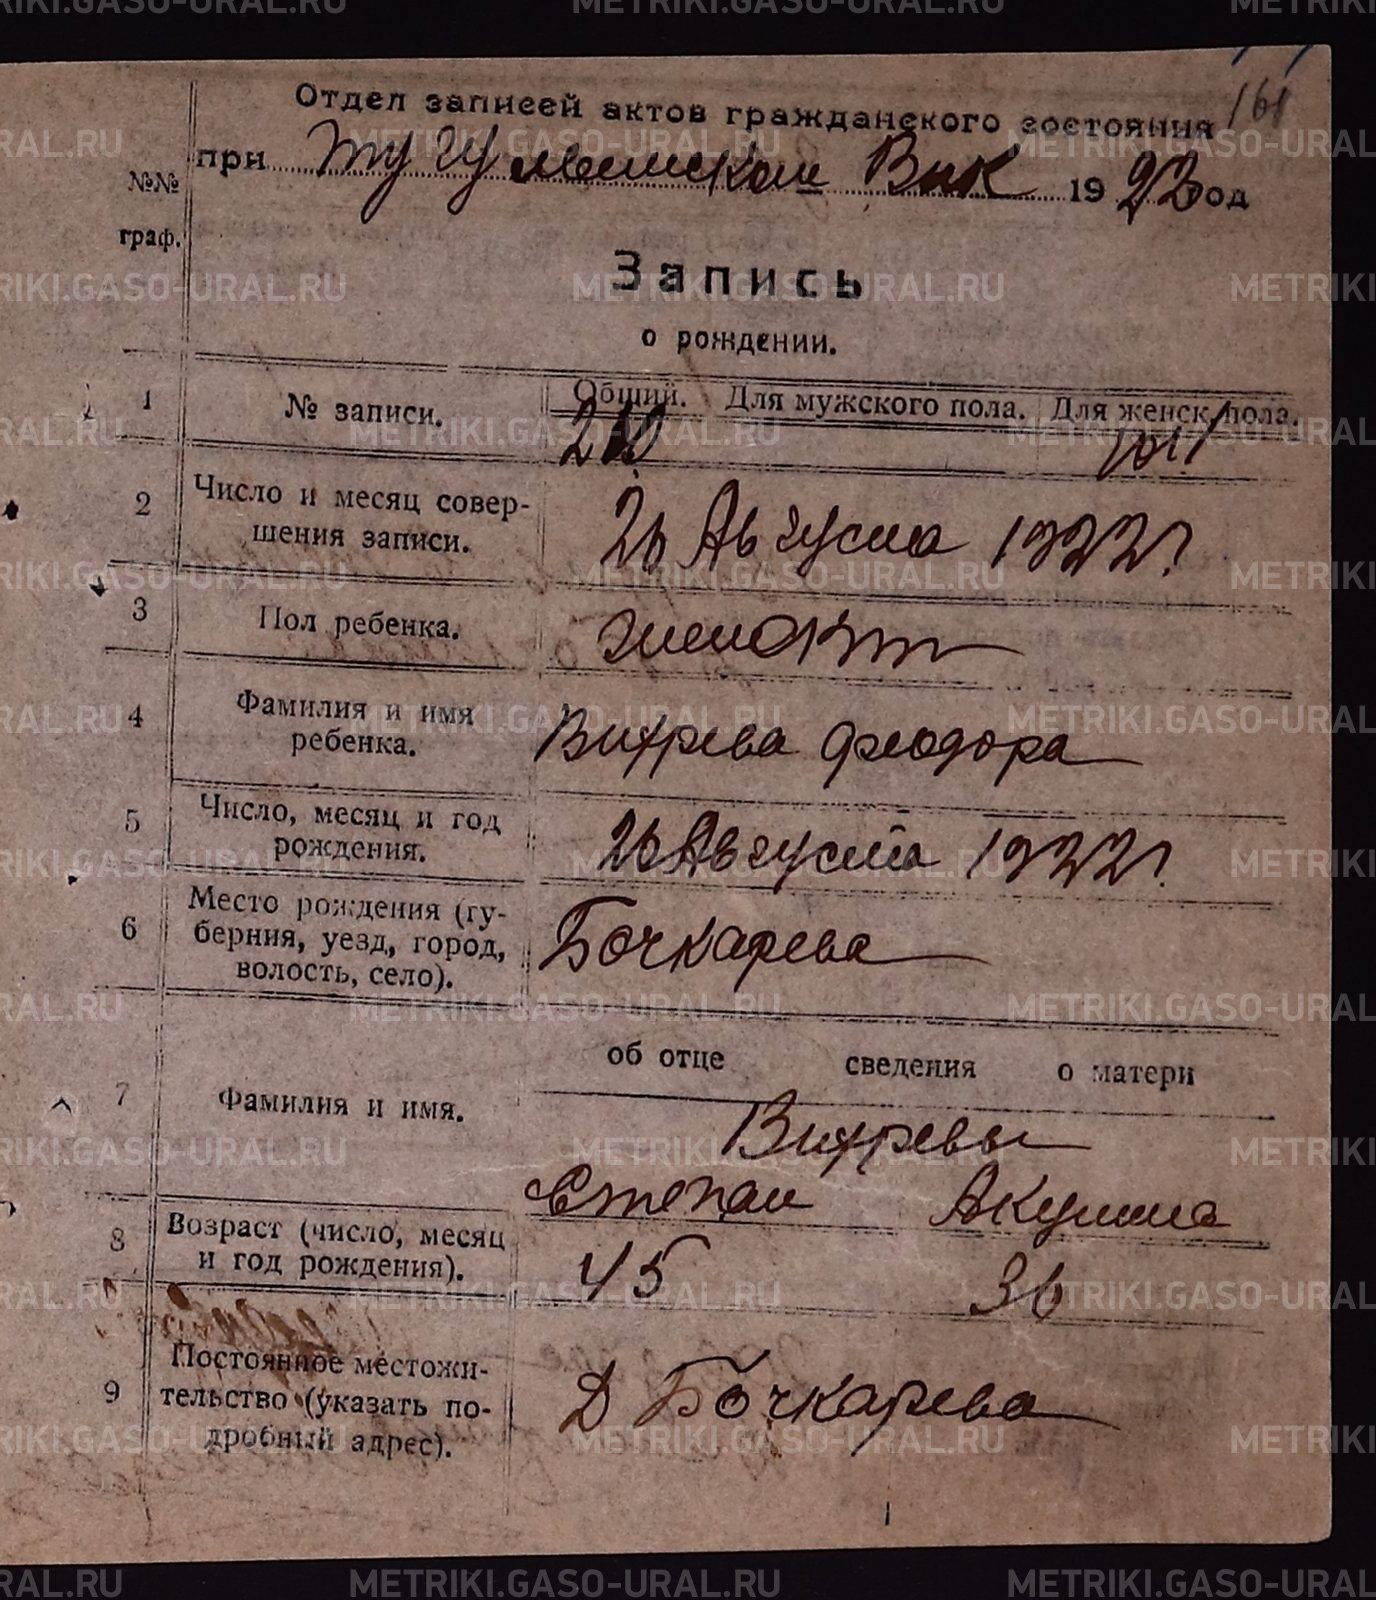 161
Отдел записей актов гражданского состояния
при Тугулымском Вик 1922 год
№№ граф.
Запись
о рождении.
Общий. Для мужского пола. Для женск. пола.
1 № записи.
2 Число и месяц совершения записи. 26 Августа 1922 г
3 Пол ребенка.
4 Фамилия и имя ребенка. Вихрева Феодора
5 Число, месяц и год рождения. 26 Августа 1922 г.
6 Место рождения (губерния, уезд, город, волость, село). Бочкарева
об отце сведения о матери
7 Фамилия и имя. Вихревы
Степан Акулина
8 Возраст (число, месяц и год рождения). 45 36
9 Постоянное местожительство (указать подробный адрес). Д Бочкарева
METRIKI.GASO-URAL.RU